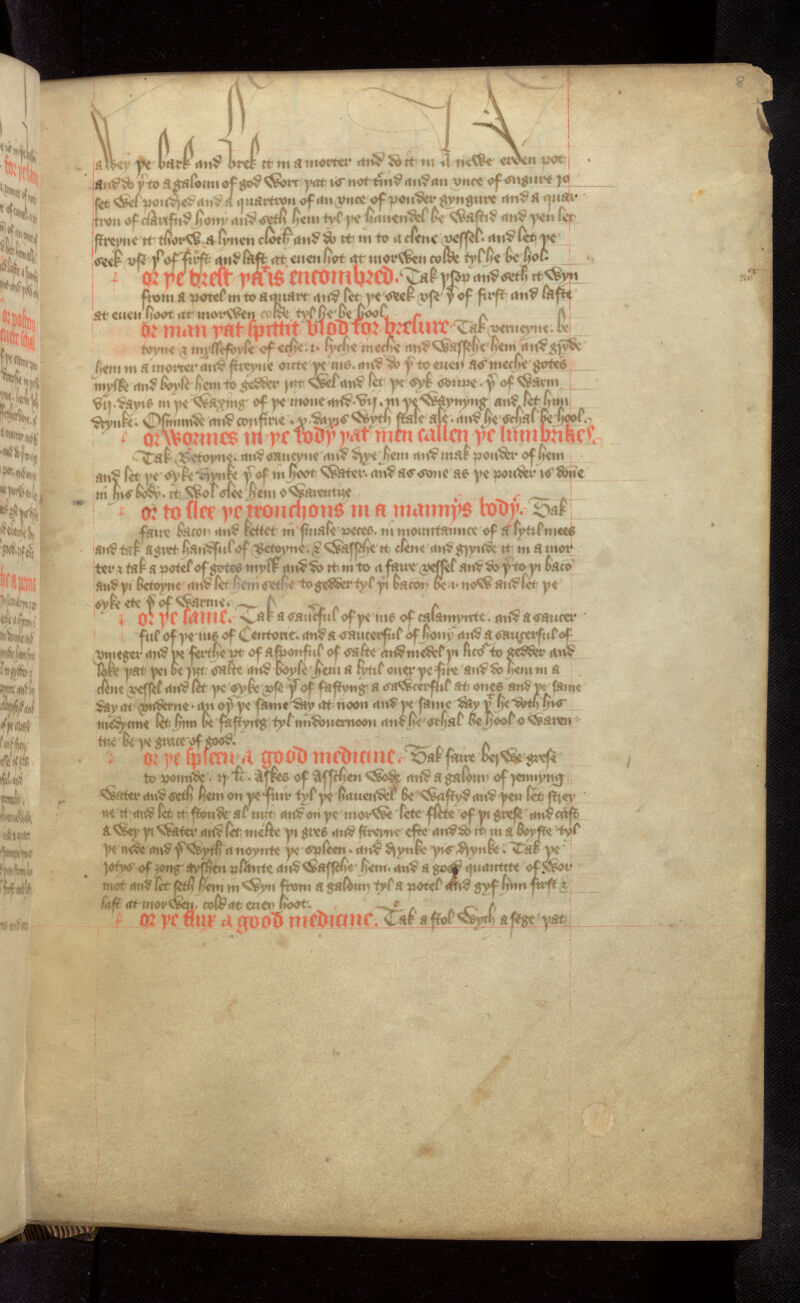 8
a wey þe bark and brek it in a morter and do it in a newe erden pot
and do þ to a galoun of god wort þat is not tind and an vnce of sugure
set wel poudred and a quartron of an vnce of pouder gyngure and a quar
tron of clarifud hony and seth hem tyl þe hauendel be wastid and þen let
streyne it thorw a lynen cloth and do it in to a clene vessel. and let þe
seek vse þ of first and last at euen hot at morwen colde tyl he be hol.
or þe brest þat is encombred. Tak ysop and seth it wyn
from a potel in to a quart and let þe seek vse þ of first and laste
at euen hoot at morwen colde tyl he be hool.
or man þat spittit blod for bresure Tak verueyne. be
toyne & myllefoyle of eche. i. lyche meche and wassche hem and gynde
hem in a morter and streyne oute þe ius. and do þ to euen as meche gotes
mylke and boyle hem to gedder wel and let þe syk soupe. þ of warm
vij. dayis in þe waxing of þe mone and. vij. in þe waynyng and let him
drynke. Osmunde and confirie. v. dayis wyth stale ale. and he schal be hool.
or wormes in þe body þat men callen þe lumbrikes.
Tak Betoyne. and saueyne and drye hem and mak pouder of hem
and let þe syke drynke þ of in hoot water. and as sone as þe pouder is done
in his body. it wol slee hem o warentye
or to slee þe tronchons in a mannys body. Tak
faire bacon and kettet in smale peces. in mountaunce of a lytil mees
and tak a gret handful of Betoyne. & wassche it clene and grynde it in a mor
ter & tak a potel of gotes mylk and do it in to a faire vessel and do þ to þi baco
and þi betoyne and let hem sethe to gedder tyl þi bacon be i now and let þe
syke ete þ of warme.
or þe same. Tak a sauceful of þe ius of calamynte. and a saucer
ful of þe ius of Centorie. and a saucerful of hony and a saucerful of
vineger and þe ferthe pt of a sponful of salte and medel þi licos to gedder and
loke þat þei be salte and boyle hem a lytil ouer þe fire and do hem in a
clene vessel and let þe syke vse þ of fastyng a sawcerful at ones and þe same
day at vnderne. an oþ þe same day at noon and þe same day þ he doth his
medycine let him be fastyng tyl midouernoon and he schal be hool o waren
tise be þe grace of good.
or þe spleen a good medicine. Tak faire berwe grese
to pounde. & askes of asschen wode and a galoun of rennyng
water and seth hem on þe fuir tyl þe hauendel be wastyd and þen let strey
ne it and let it stonde al nut and on þe morwe lete flete of þi grese and cast
a wey þi water and let melte þi gres and streyne efte and do it in a boyste tyl
þe nede and þ wyth a noynte þe spleen. and drynke þis drynke. Tak þe
rotys of zong ayschen plante and wassche hem. and a good quantite of wor
mot and let seth hem in wyn from a galoun tyl a potel and gyf him first &
last at morwen. cold at euen hoot.
or þe flux a good medicine. Tak a stol wyth a sege þat